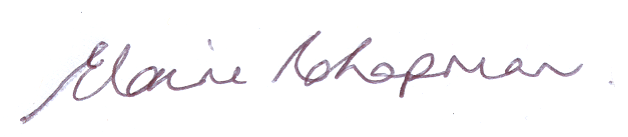 Elaine Chapman.